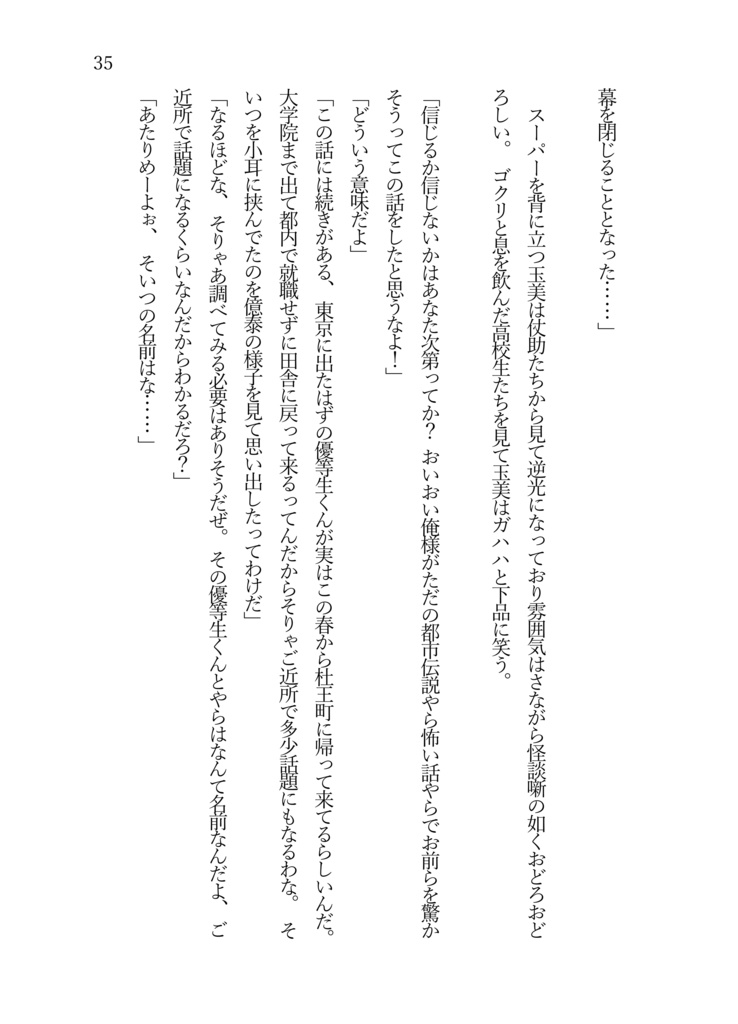 35
幕を閉じることとなった……」
　スーパーを背に立つ玉美は仗助たちから見て逆光になっており雰囲気はさながら怪談噺の如くおどろおど
ろしい。　ゴクリと息を飲んだ高校生たちを見て玉美はガハハと下品に笑う。
「信じるか信じないかはあなた次第ってか？　おいおい俺様がただの都市伝説やら怖い話やらでお前らを驚か
そうってこの話をしたと思うなよ！」
「どういう意味だよ」
「この話には続きがある、　東京に出たはずの優等生くんが実はこの春から杜王町に帰って来てるらしいんだ。
大学院まで出て都内で就職せずに田舎に戻って来るってんだからそりゃご近所で多少話題にもなるわな。　そ
いつを小耳に挟んでたのを億泰の様子を見て思い出したってわけだ」
「なるほどな、　そりゃあ調べてみる必要はありそうだぜ。　その優等生くんとやらはなんて名前なんだよ、　ご
近所で話題になるくらいなんだからわかるだろ？」
「あたりめーよぉ、　そいつの名前はな……」